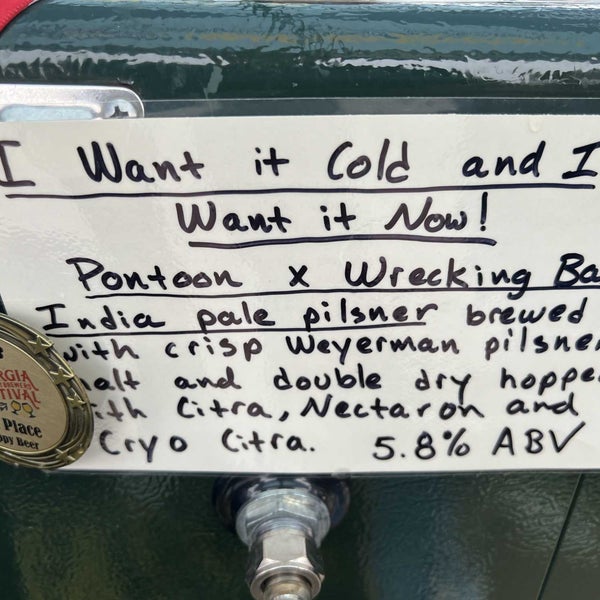 I Want it Cold and I
Want it Now!
Pontoon x Wrecking Ba
India pale pilsner brewed
with crisp Weyerman pilsner
malt and double dry hoppe
with Citra, Nectaron and
Cryo Citra. 5.8% ABV
RGIA
TIVAL
Place
ppy Beer